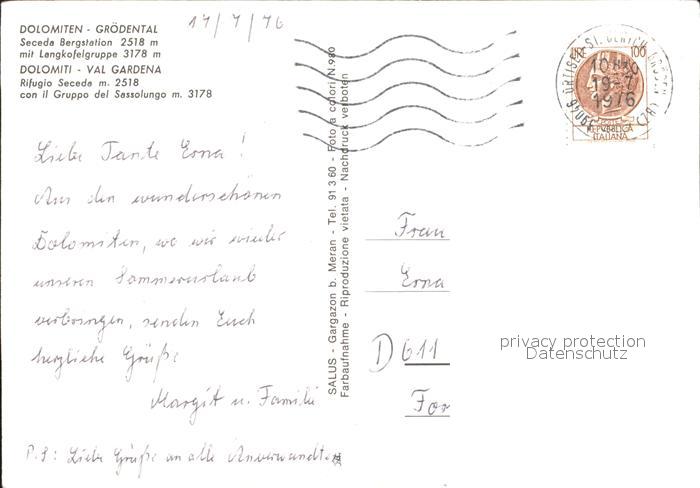 DOLOMITEN - GRÖDENTAL
Seceda Bergstation 2518 m
mit Langkofelgruppe 3178 m
DOLOMITI - VAL GARDENA
Rifugio Seceda m. 2518
con il Gruppo del Sassolungo m. 3178
17/7/76
Liebe Tante Erna!
Aus den wunderschönen
Dolomiten, wo wir wieder
unseren Sommerurlaub
verbringen, senden Euch
herzliche Grüße
Margit u. Familie
P.S: Liebe Grüße an alle Anverwandten
SALUS - Gargazon b. Meran - Tel. 91 3 60 - Foto a colori N. 980
Farbaufnahme - Riproduzione vietata - Nachdruck verboten
LIRE 100
REPVBBLICA
ITALIANA
39046 ORTISEI ST. ULRICH GRÖDEN (BZ)
1976
Frau
Erna
D 611
For
privacy protection
Datenschutz